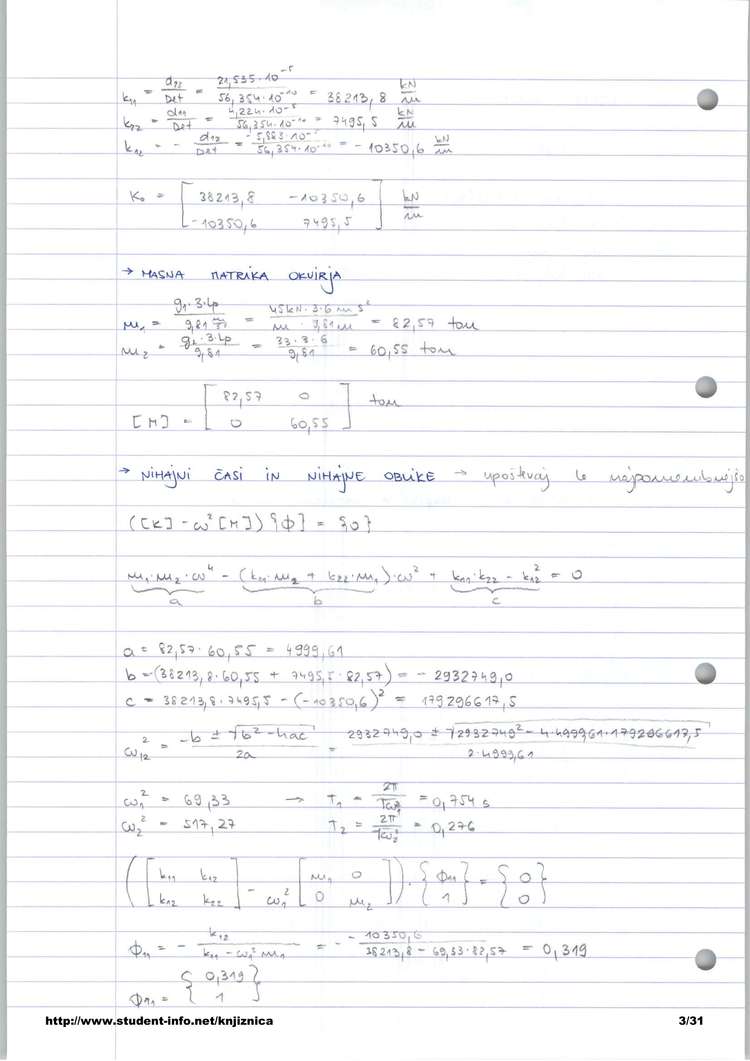 k₁₁ = d₂₂/Det = 21,535·10⁻⁵/56,354·10⁻¹⁰ = 38213,8 kN/m
k₂₂ = d₁₁/Det = 4,224·10⁻⁵/56,354·10⁻¹⁰ = 7495,5 kN/m
k₁₂ = - d₁₂/Det = -5,833·10⁻⁵/56,354·10⁻¹⁰ = -10350,6 kN/m
K₀ = [ 38213,8 -10350,6
-10350,6 7495,5 ] kN/m
→ MASNA MATRIKA OKVIRJA
m₁ = g₁·3·Lp/9,81 = 45kN·3·6 m s²/m · 9,81 m = 82,57 ton
m₂ = g₂·3·Lp/9,81 = 33·3·6/9,81 = 60,55 ton
[M] = [ 82,57 0
0 60,55 ] ton
→ NIHAJNI ČASI IN NIHAJNE OBLIKE → upoštevaj le najpomembnejšo
([K] - ω²[M]){Φ} = {0}
m₁·m₂·ω⁴ - (k₁₁·m₂ + k₂₂·m₁)·ω² + k₁₁·k₂₂ - k₁₂² = 0
a b c
a = 82,57·60,55 = 4999,61
b = -(38213,8·60,55 + 7495,5·82,57) = - 2932749,0
c = 38213,8·7495,5 - (-10350,6)² = 179296617,5
ω₁₂² = -b ± √b² - 4ac/2a = 2932749,0 ± √2932749² - 4·4999,61·179296617,5/2·4999,61
ω₁² = 69,33 → T₁ = 2π/√ω₁² = 0,754 s
ω₂² = 517,27 T₂ = 2π/√ω₂² = 0,276
([ k₁₁ k₁₂
k₁₂ k₂₂ ] - ω₁² [ m₁ 0
0 m₂ ]) · { Φ₁₁
1 } = { 0
0 }
Φ₁₁ = - k₁₂/k₁₁ - ω₁² m₁ = - -10350,6/38213,8 - 69,33·82,57 = 0,319
Φ₁₁ = { 0,319
1 }
http://www.student-info.net/knjiznica 3/31